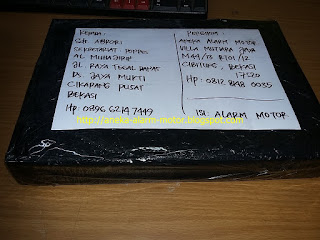 KEPADA:
SDR. ABRORI
SEKRETARIAT PONPES
AL MUHAJIRIN
JL. RAYA TEGAL DANAS
DS. JAYA MUKTI
CIKARANG PUSAT
BEKASI
Hp: 0896 6214 7449
PENGIRIM:
ANEKA ALARM MOTOR
VILLA MUTIARA JAYA
M44/13 RT01/12
CIBITUNG, BEKASI
17520
HP: 0812 8148 0035
ISI: ALARM MOTOR
http://aneka-alarm-motor.blogspot.com